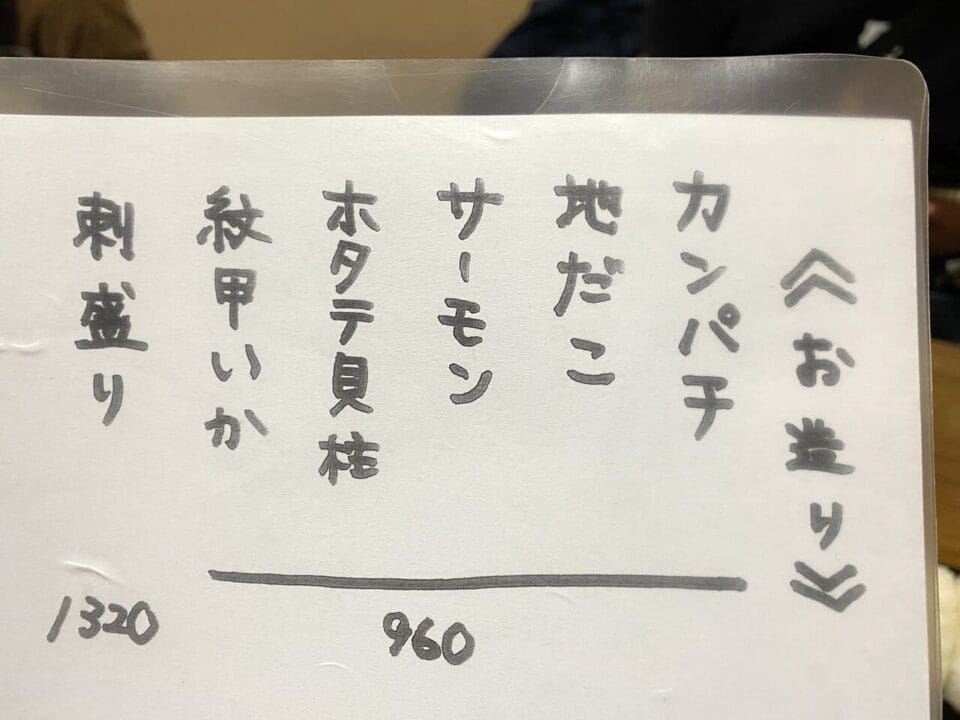 《お造り》
カンパチ
地だこ
サーモン
ホタテ貝柱
紋甲いか
960
刺盛り
1320